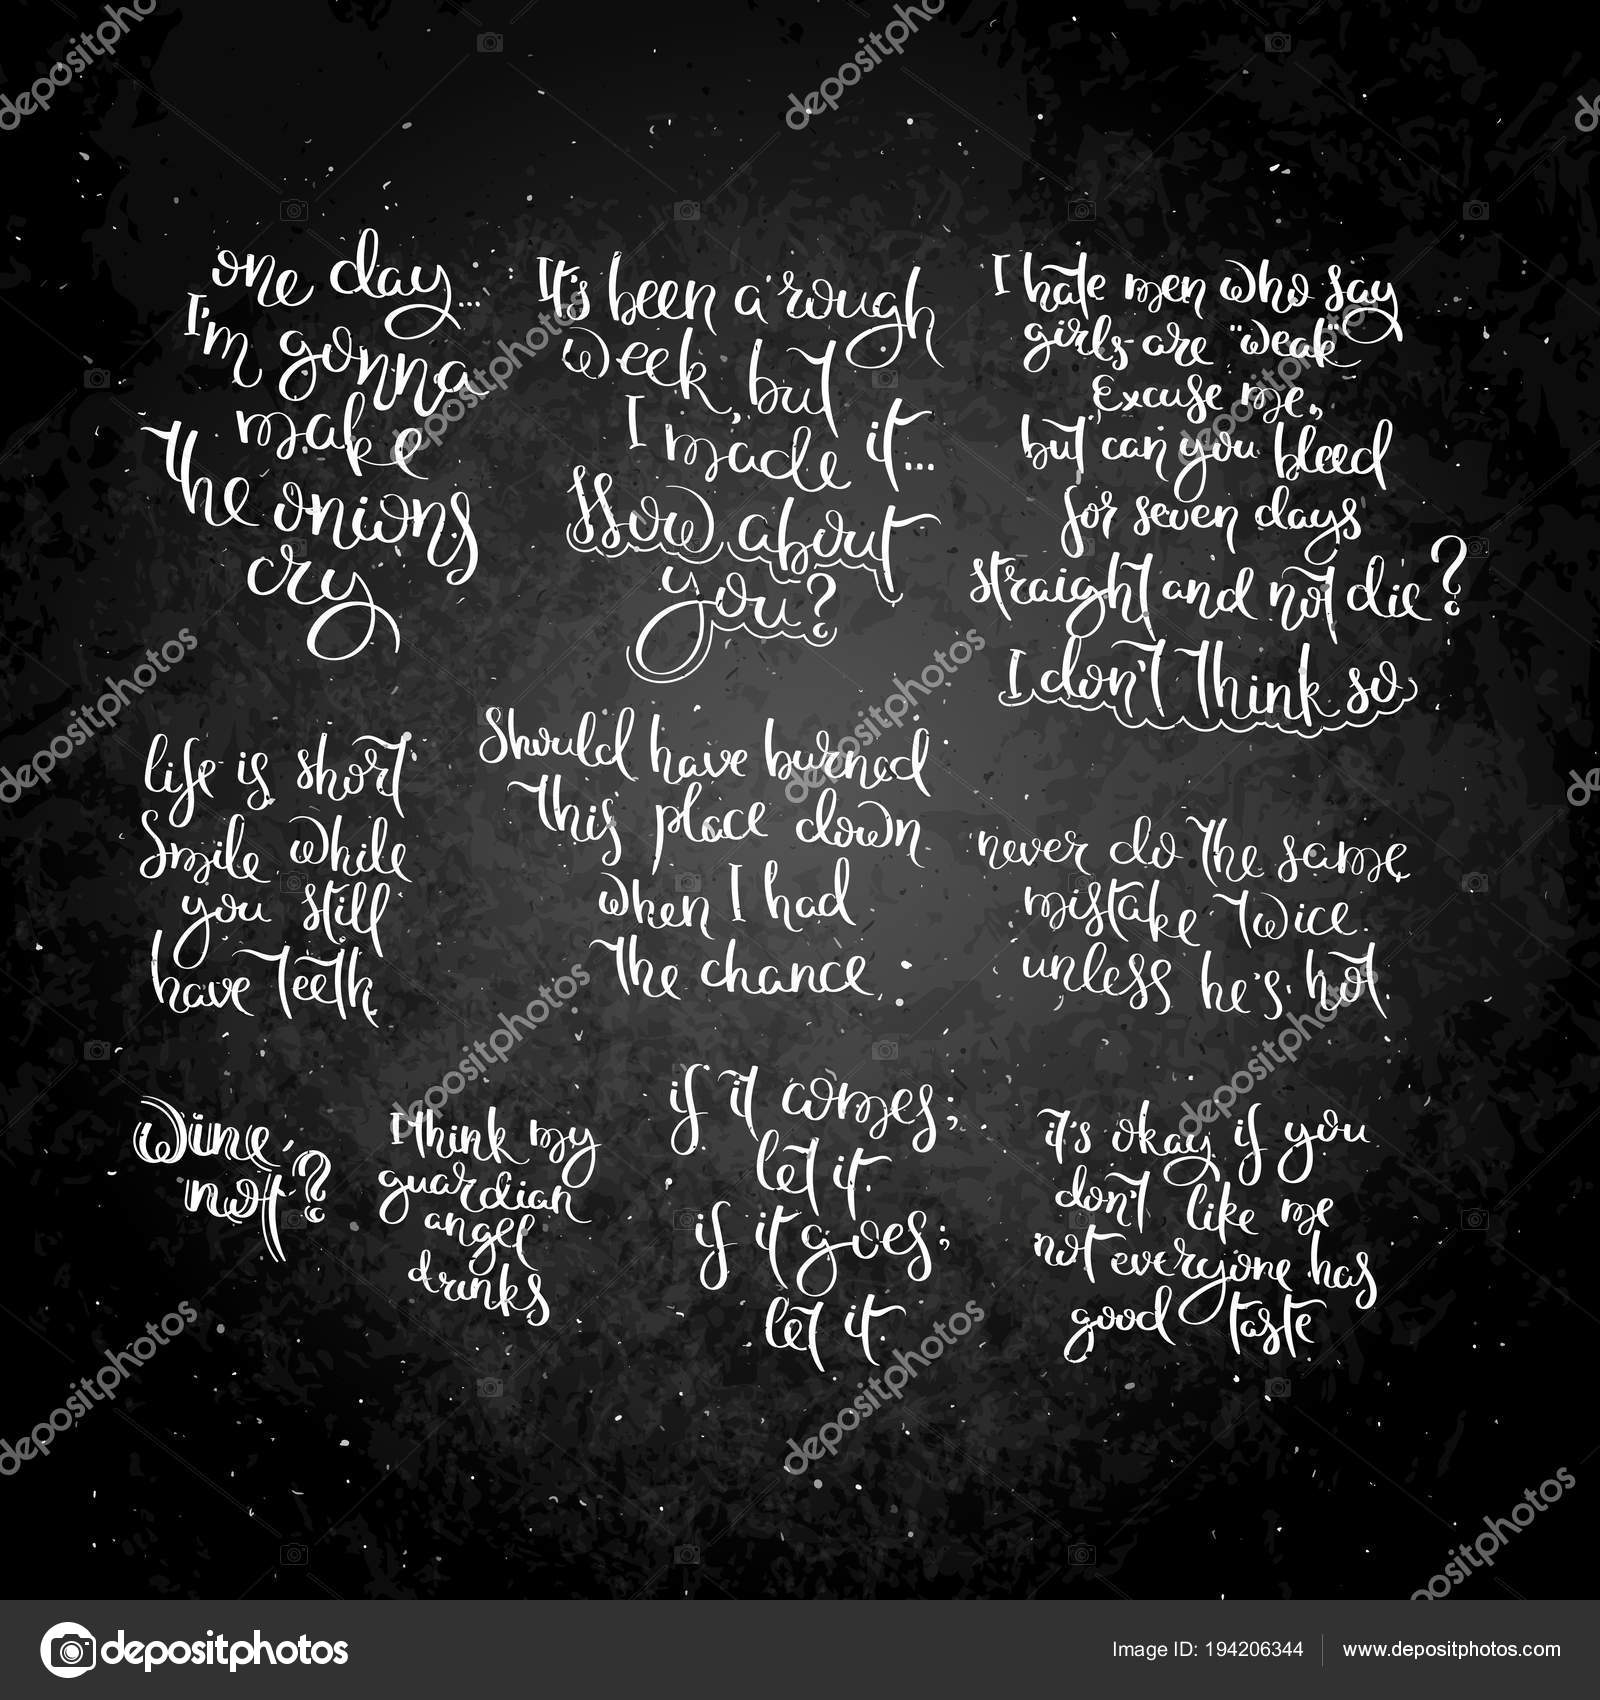 one day...
I'm gonna
make
the onions
cry
It's been a rough
week, but
I made it...
How about
you?
I hate men who say
girls are "weak"
Excuse me,
but can you bleed
for seven days
straight and not die?
I don't think so
life is short
Smile while
you still
have teeth
Should have burned
this place down
when I had
the chance.
never do the same
mistake twice.
unless he's hot.
Wine,
not?
I think my
guardian
angel
drinks
if it comes;
let it.
if it goes;
let it.
it's okay if you
don't like me
not everyone has
good taste
depositphotos
Image ID: 194206344
www.depositphotos.com